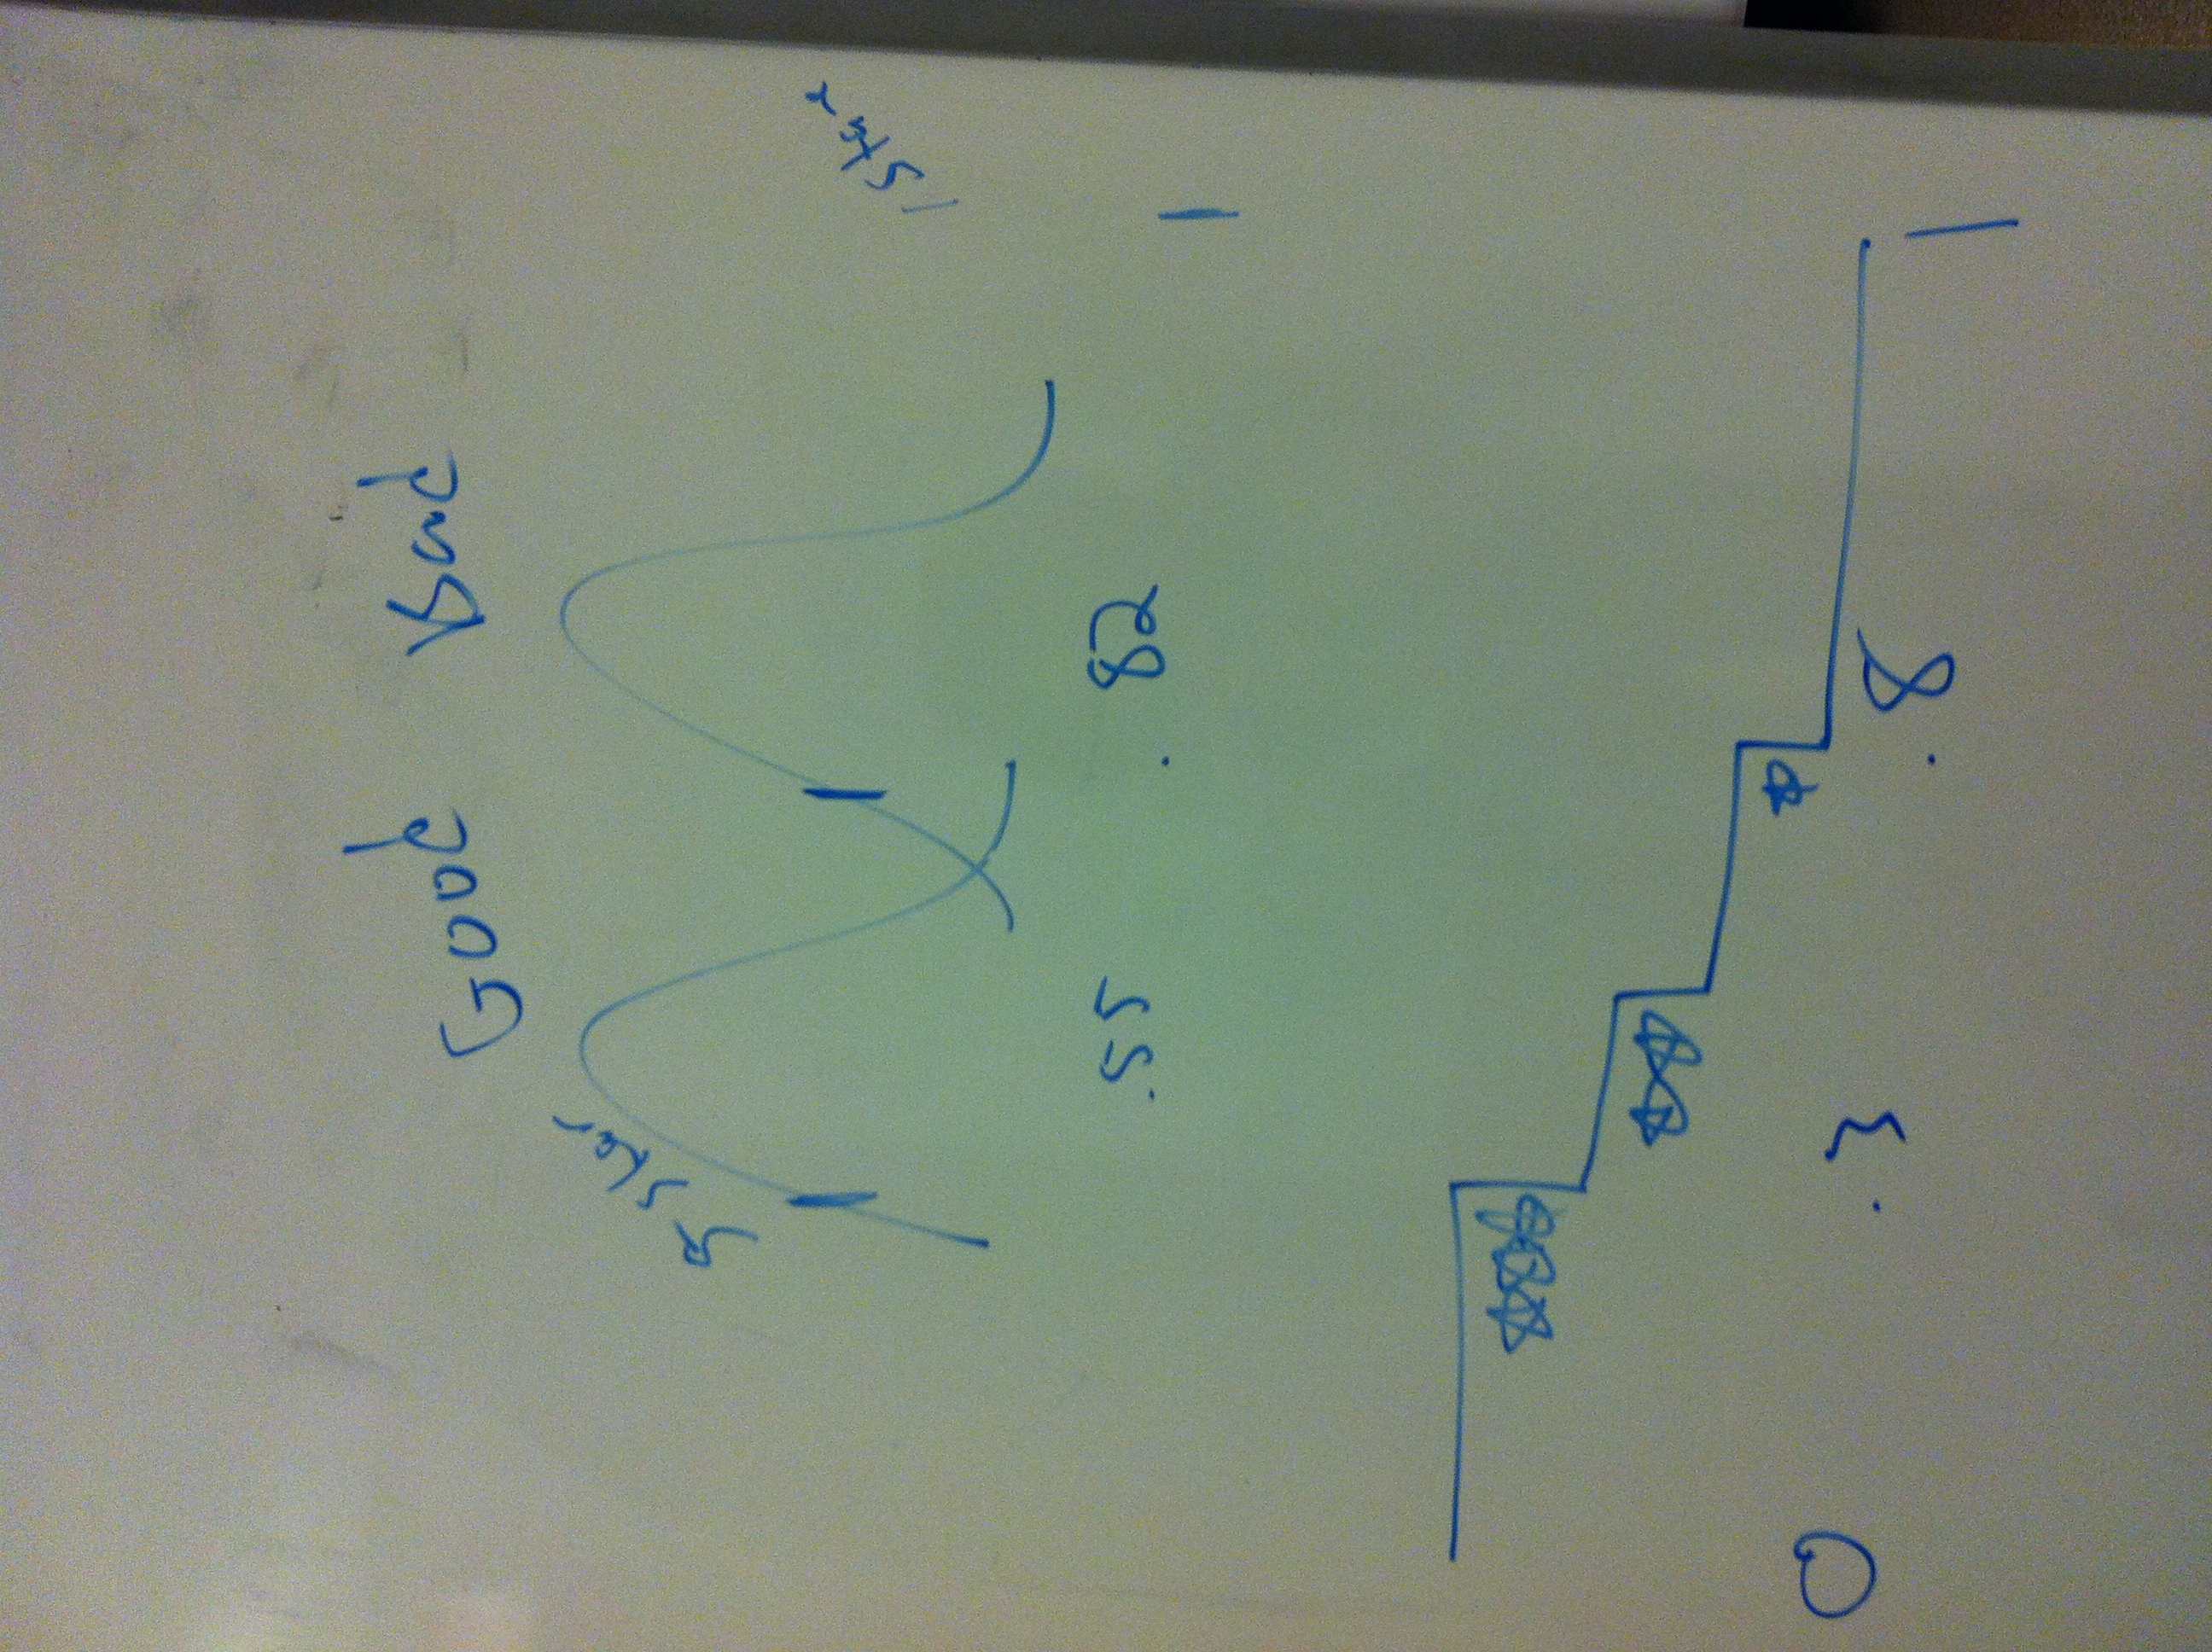 Good Bad
5 star
1 star
.55 .82 1
0 .3 .8 1